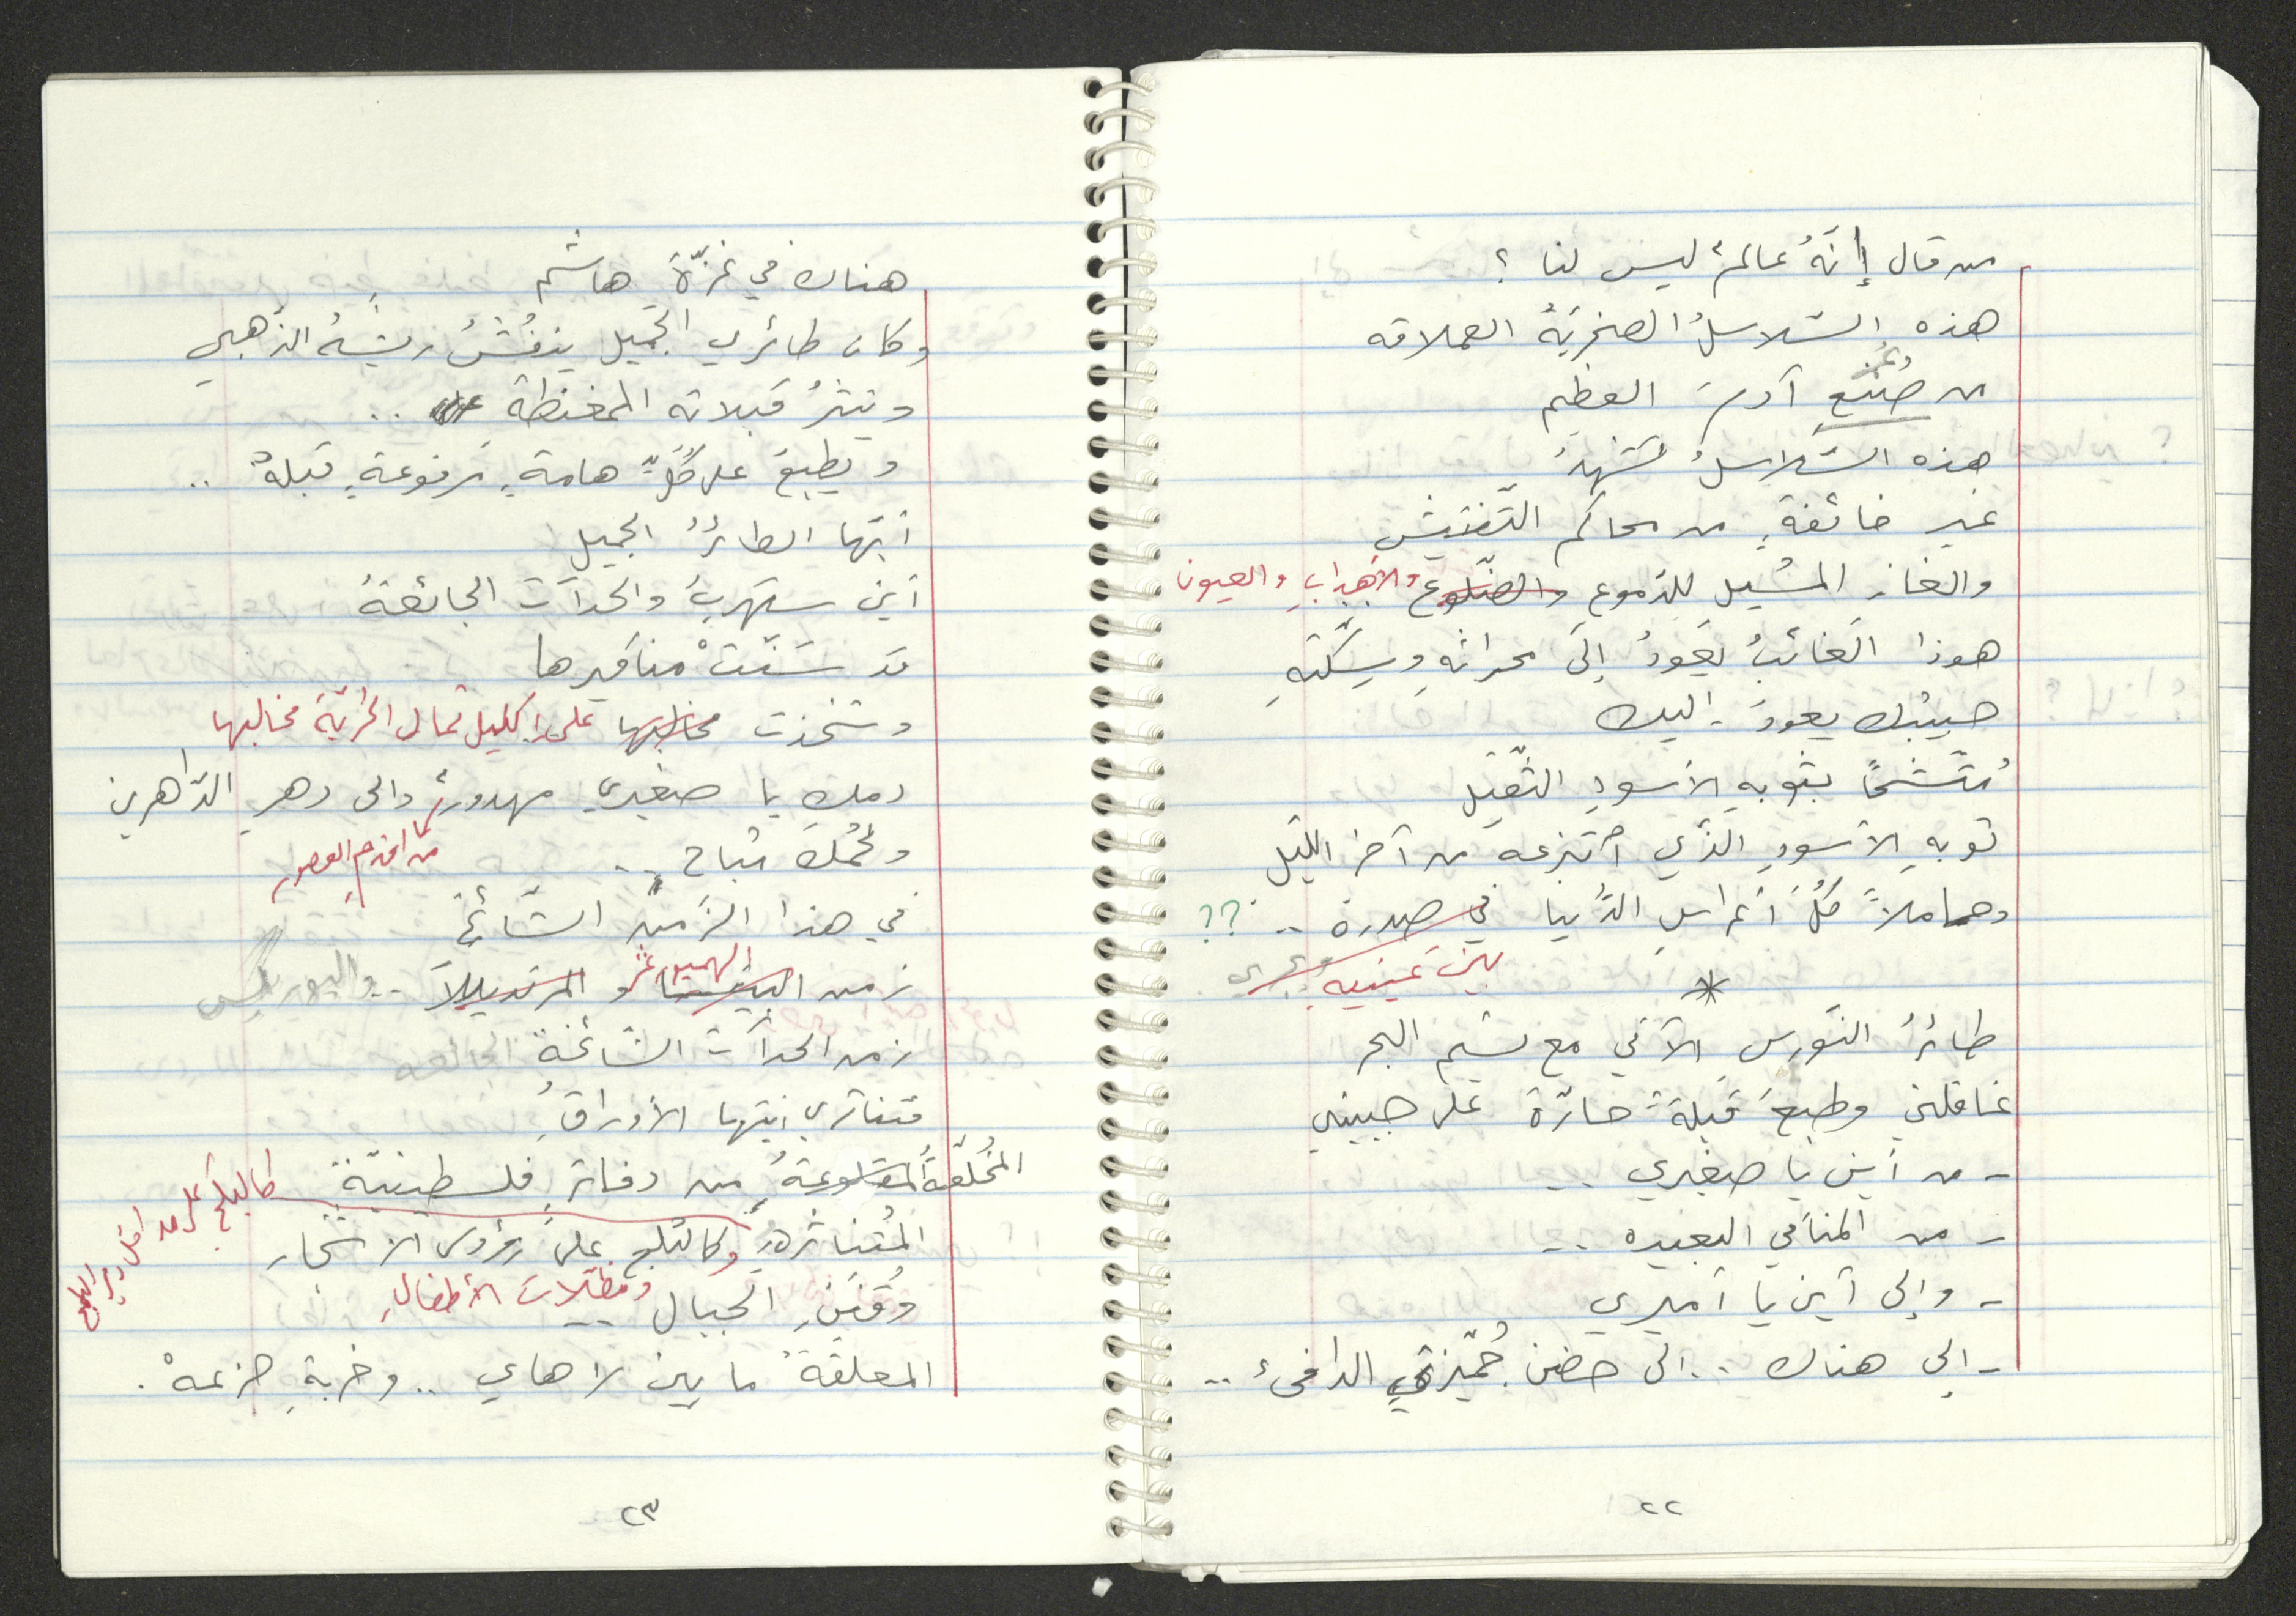 من قال إنَّهُ عالمٌ ليس لنا ؟
هذه السّلاسلُ الصخريّةُ العملاقه
من صُنعِ آدمَ العظيم
هذه السّلاسلُ تشهدُ
غير خائفةٍ من محاكم التّفتيش
والغاز المسُيل للدّموع والضّلوع والأهدابِ والعيون
هوذا الغائبُ يعودُ إلى محراثهِ وسِكّتهِ
حبيبُك يعودُ .. اليك
مُتّشحًا بثوبهِ الأسودِ الثّقيل
ثوبهِ الأسودِ الذّي انتزعه من آخر الليّل
وحاملاً كُلَّ أعراسِ الدُّنيا في صدره .. ؟؟
بين عينيه
*
طائرُ النّورسِ الآتي مع نسيم البحر
غافلني وطبعَ قبلةً حارّة على جبيني
- من أين يا صغيري ..
- من المنافي البعيده ..
- وإلى أين يا أميري
- إلى هناك .. الى حضن جُمّيزتي الدافىء ..
٢٢
هناك في غزّة هاشم
وكان طائري الجميل ينفُشُ ريشهُ الذّهبي
وينثرُ قبلاته الممغنطة ..
ويطبع على كُلِّ هامةٍ مرفوعةٍ قبلةً ..
أيّها الطائرُ الجميل
أين ستهربُ والحدآت الجائعةُ
قد سَنّتْ مناقيرها
وشحذت مخالبها على إكليل تمثال الحريّة مخالبها
دمك يا صغيري مهدورٌ والى دهرِ الدّاهرين
ولحمُك مُباح ..
من اقدم العصور
في هذا الزّمن الشّائخ
الهمبرغر
زمن البيتسا و المرتديللا .. واليوريكس
زمن الحدآت الشائخة الجائعه
فتناثري أيّتها الأوراقُ
المُخلّعةُ المقلوعةُ من دفاترٍ فلسطينيّة
المُتناثرةُ وكالثلج على رؤوس الأشجار
وقُننِ الجبال .. ومظلّات الأطفالِ
المعلقةُ ما بين لاهاي .. وخربةِ خزعهْ .
٢٣